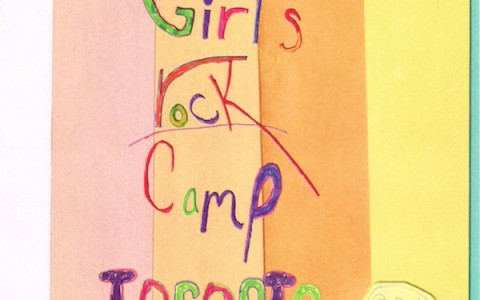 Girls
rock
Camp
Toronto